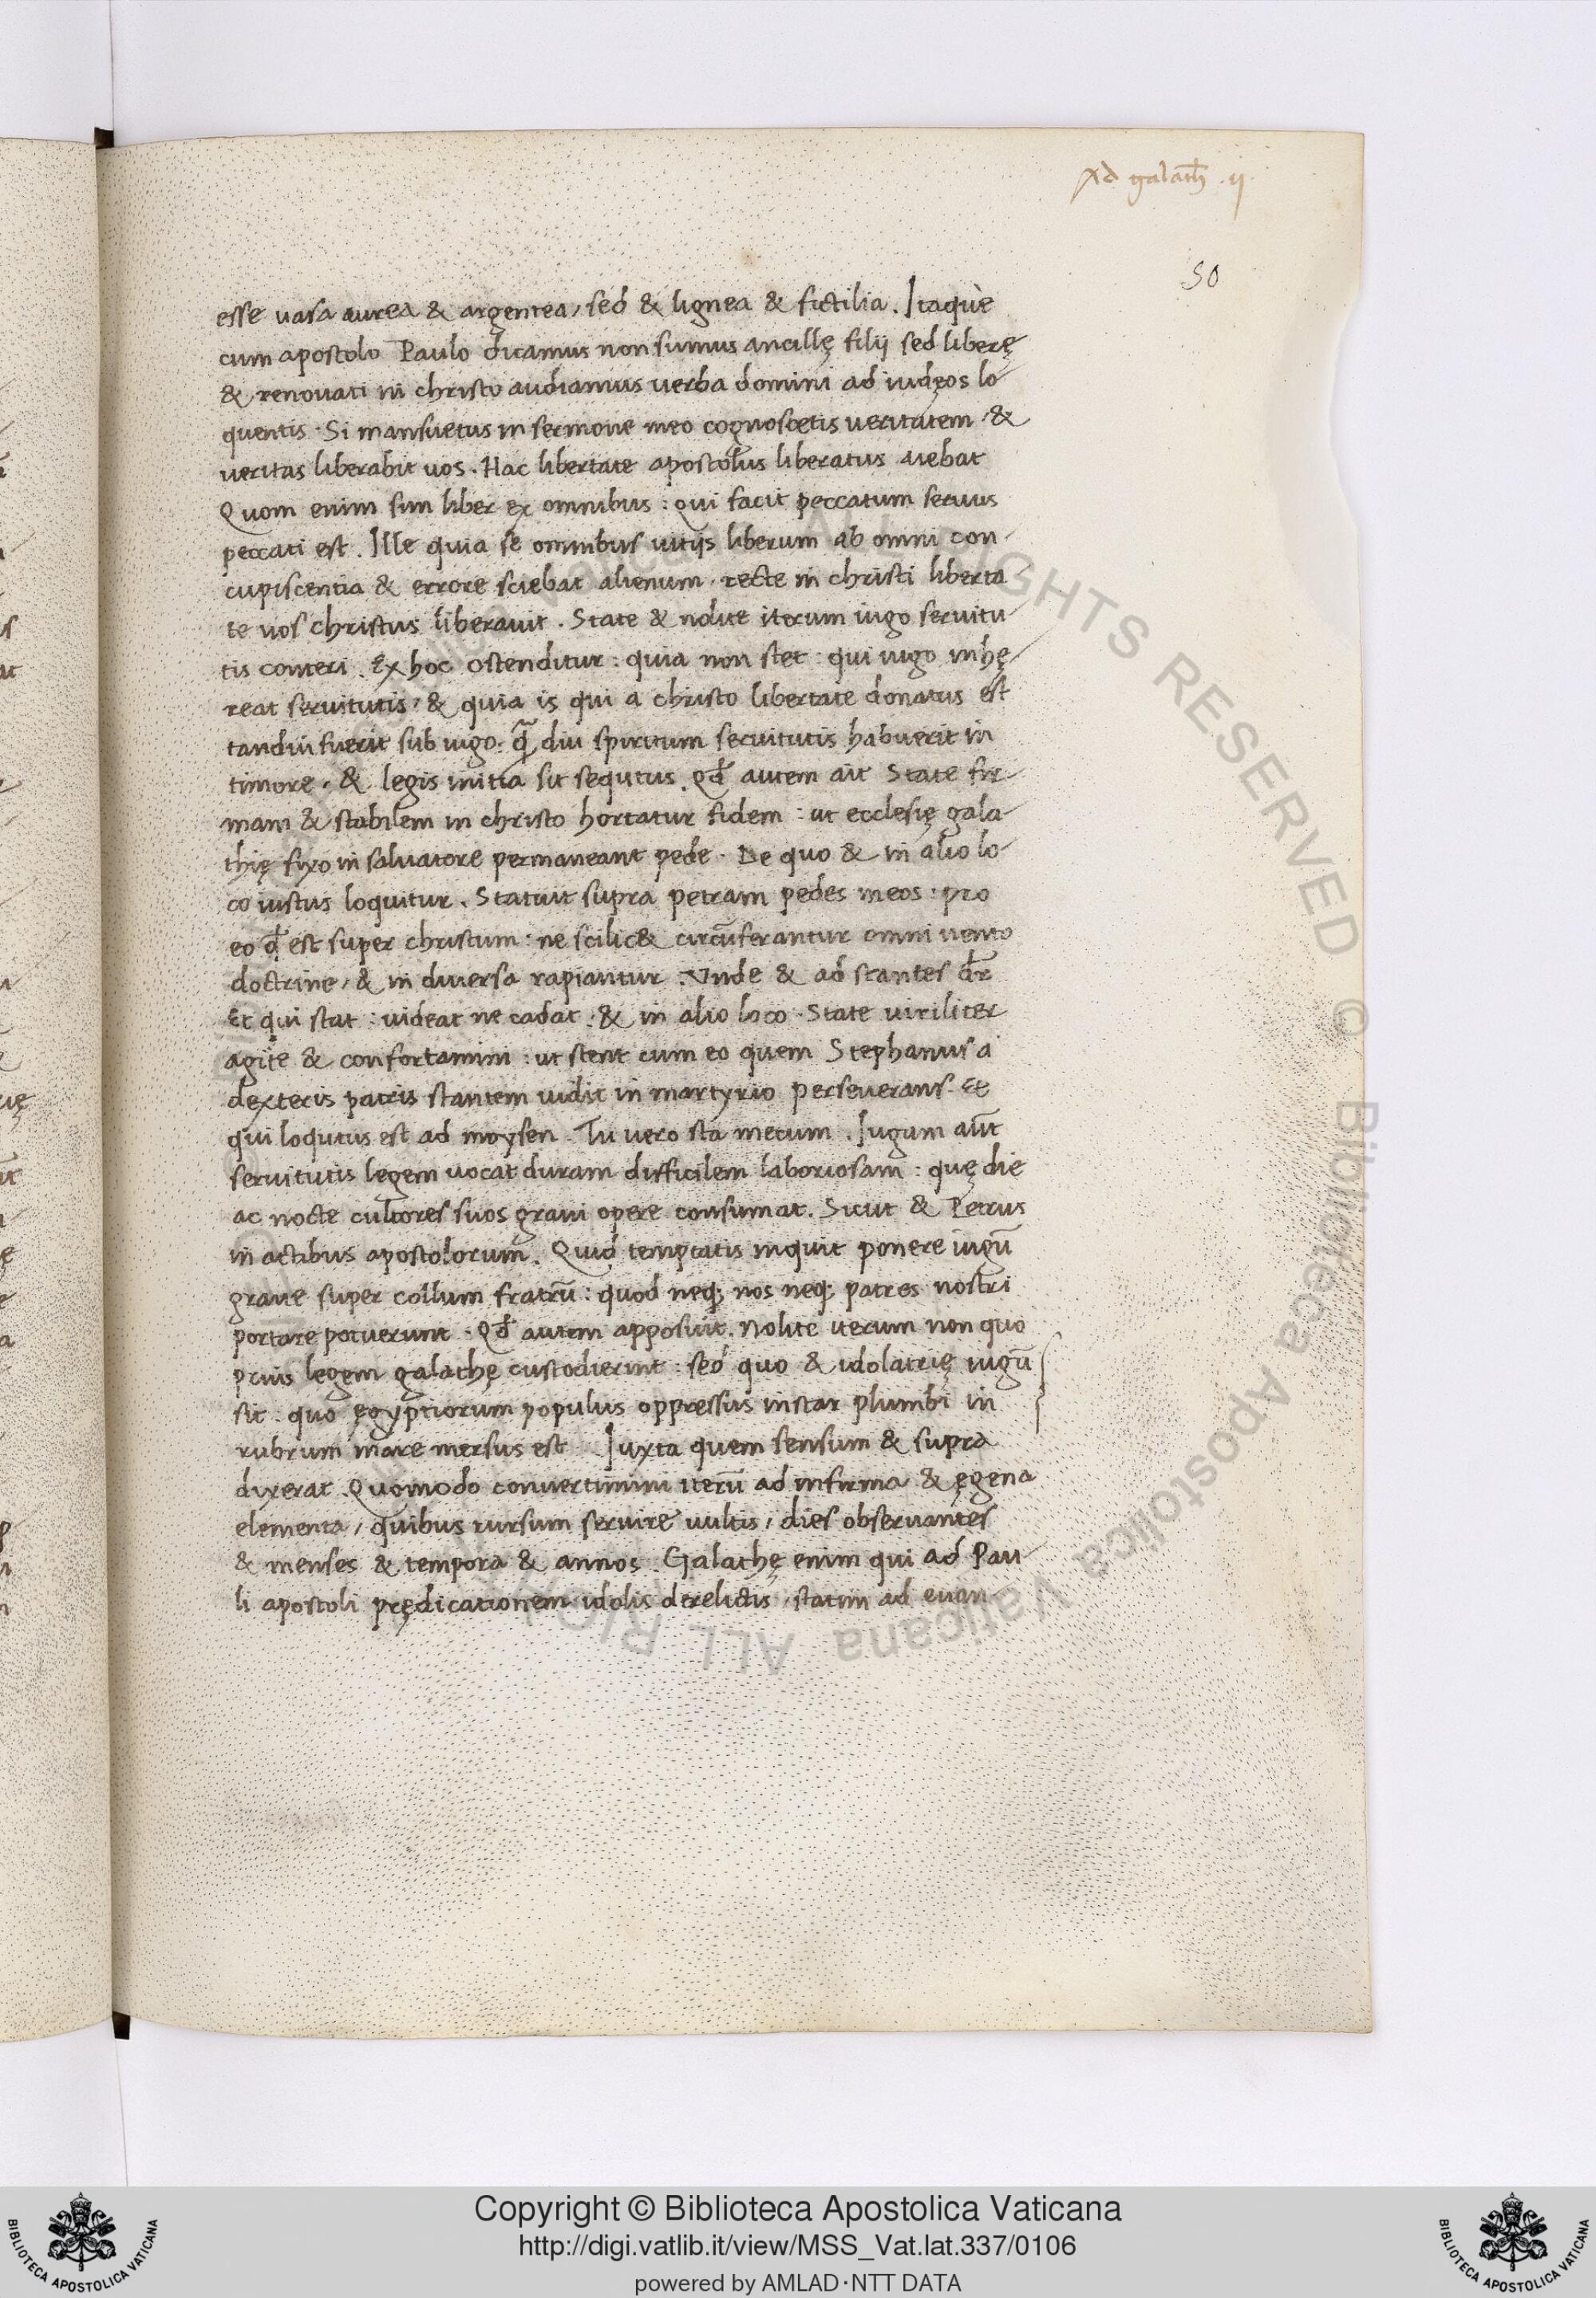 Ad galath̄ . ij
50
esse uasa aurea & argentea, sed & lignea & fictilia. Itaque
cum apostolo Paulo dicamus non sumus ancillę filij sed liberę
& renouati in christo audiamus uerba domini ad iudęos lo-
quentis. Si mansuetus in sermone meo cognoscetis ueritatem. &
ueritas liberabit uos. Hac libertate apostolus liberatus aiebat
Quom enim sim liber ex omnibus : qui facit peccatum seruus
peccati est. Ille quia se omnibus uitijs liberum ab omni con-
cupiscentia & errore sciebat alienum. recte in christi liberta
te uos christus liberauit. State & nolite iterum iugo seruitu-
tis conteri. Ex hoc ostenditur : quia non stet : qui iugo inhę-
reat seruitutis, & quia is qui a christo libertate donatus est
tandiu fuerit sub iugo. q̄ diu spiritum seruitutis habuerit in
timore. & legis initia sit sequtus. Qđ autem ait State fir-
mam & stabilem in christo hortatur fidem : ut ecclesię gala-
thię fixo in saluatore permaneant pede. De quo & in alio lo-
co iustus loquitur. Statuit supra petram pedes meos. pro
eo qđ est super christum : ne scilic& circūferantur omni uento
doctrine, & in diuersa rapiantur. Vnde & ad stantes dr̄
Et qui stat : uideat ne cadat. & in alio loco. State uiriliter
agite & confortamini : ut stent cum eo quem Stephanus a
dexteris patris stantem uidit in martyrio perseuerans. Et
qui loqutus est ad moysen. Tu uero sta mecum. Iugum aūt
seruitutis legem uocat duram difficilem laboriosam : quę die
ac nocte cultores suos graui opere consumat. Sicut & Petrus
in actibus apostolorum. Quid temptatis inquit ponere iugū
graue super collum fratrū : quod neq; nos neq; patres nostri
portare potuerunt. Qđ autem apposuit. Nolite iterum non quo
prius legem galathę custodierint : sed quo & idolatrię iugū
sit. quo ęgyptiorum populus oppressus instar plumbi in
rubrum mare mersus est Iuxta quem sensum & supra
dixerat. Quomodo conuertimini iterū ad infirma & ęgena
elementa, quibus rursum seruire uultis, dies obseruantes
& menses & tempora & annos. Galathę enim qui ad Pau-
li apostoli prędicationem idolis derelictis, statim ad euan-
Copyright © Biblioteca Apostolica Vaticana
http://digi.vatlib.it/view/MSS_Vat.lat.337/0106
powered by AMLAD·NTT DATA
BIBLIOTECA APOSTOLICA VATICANA
BIBLIOTECA APOSTOLICA VATICANA